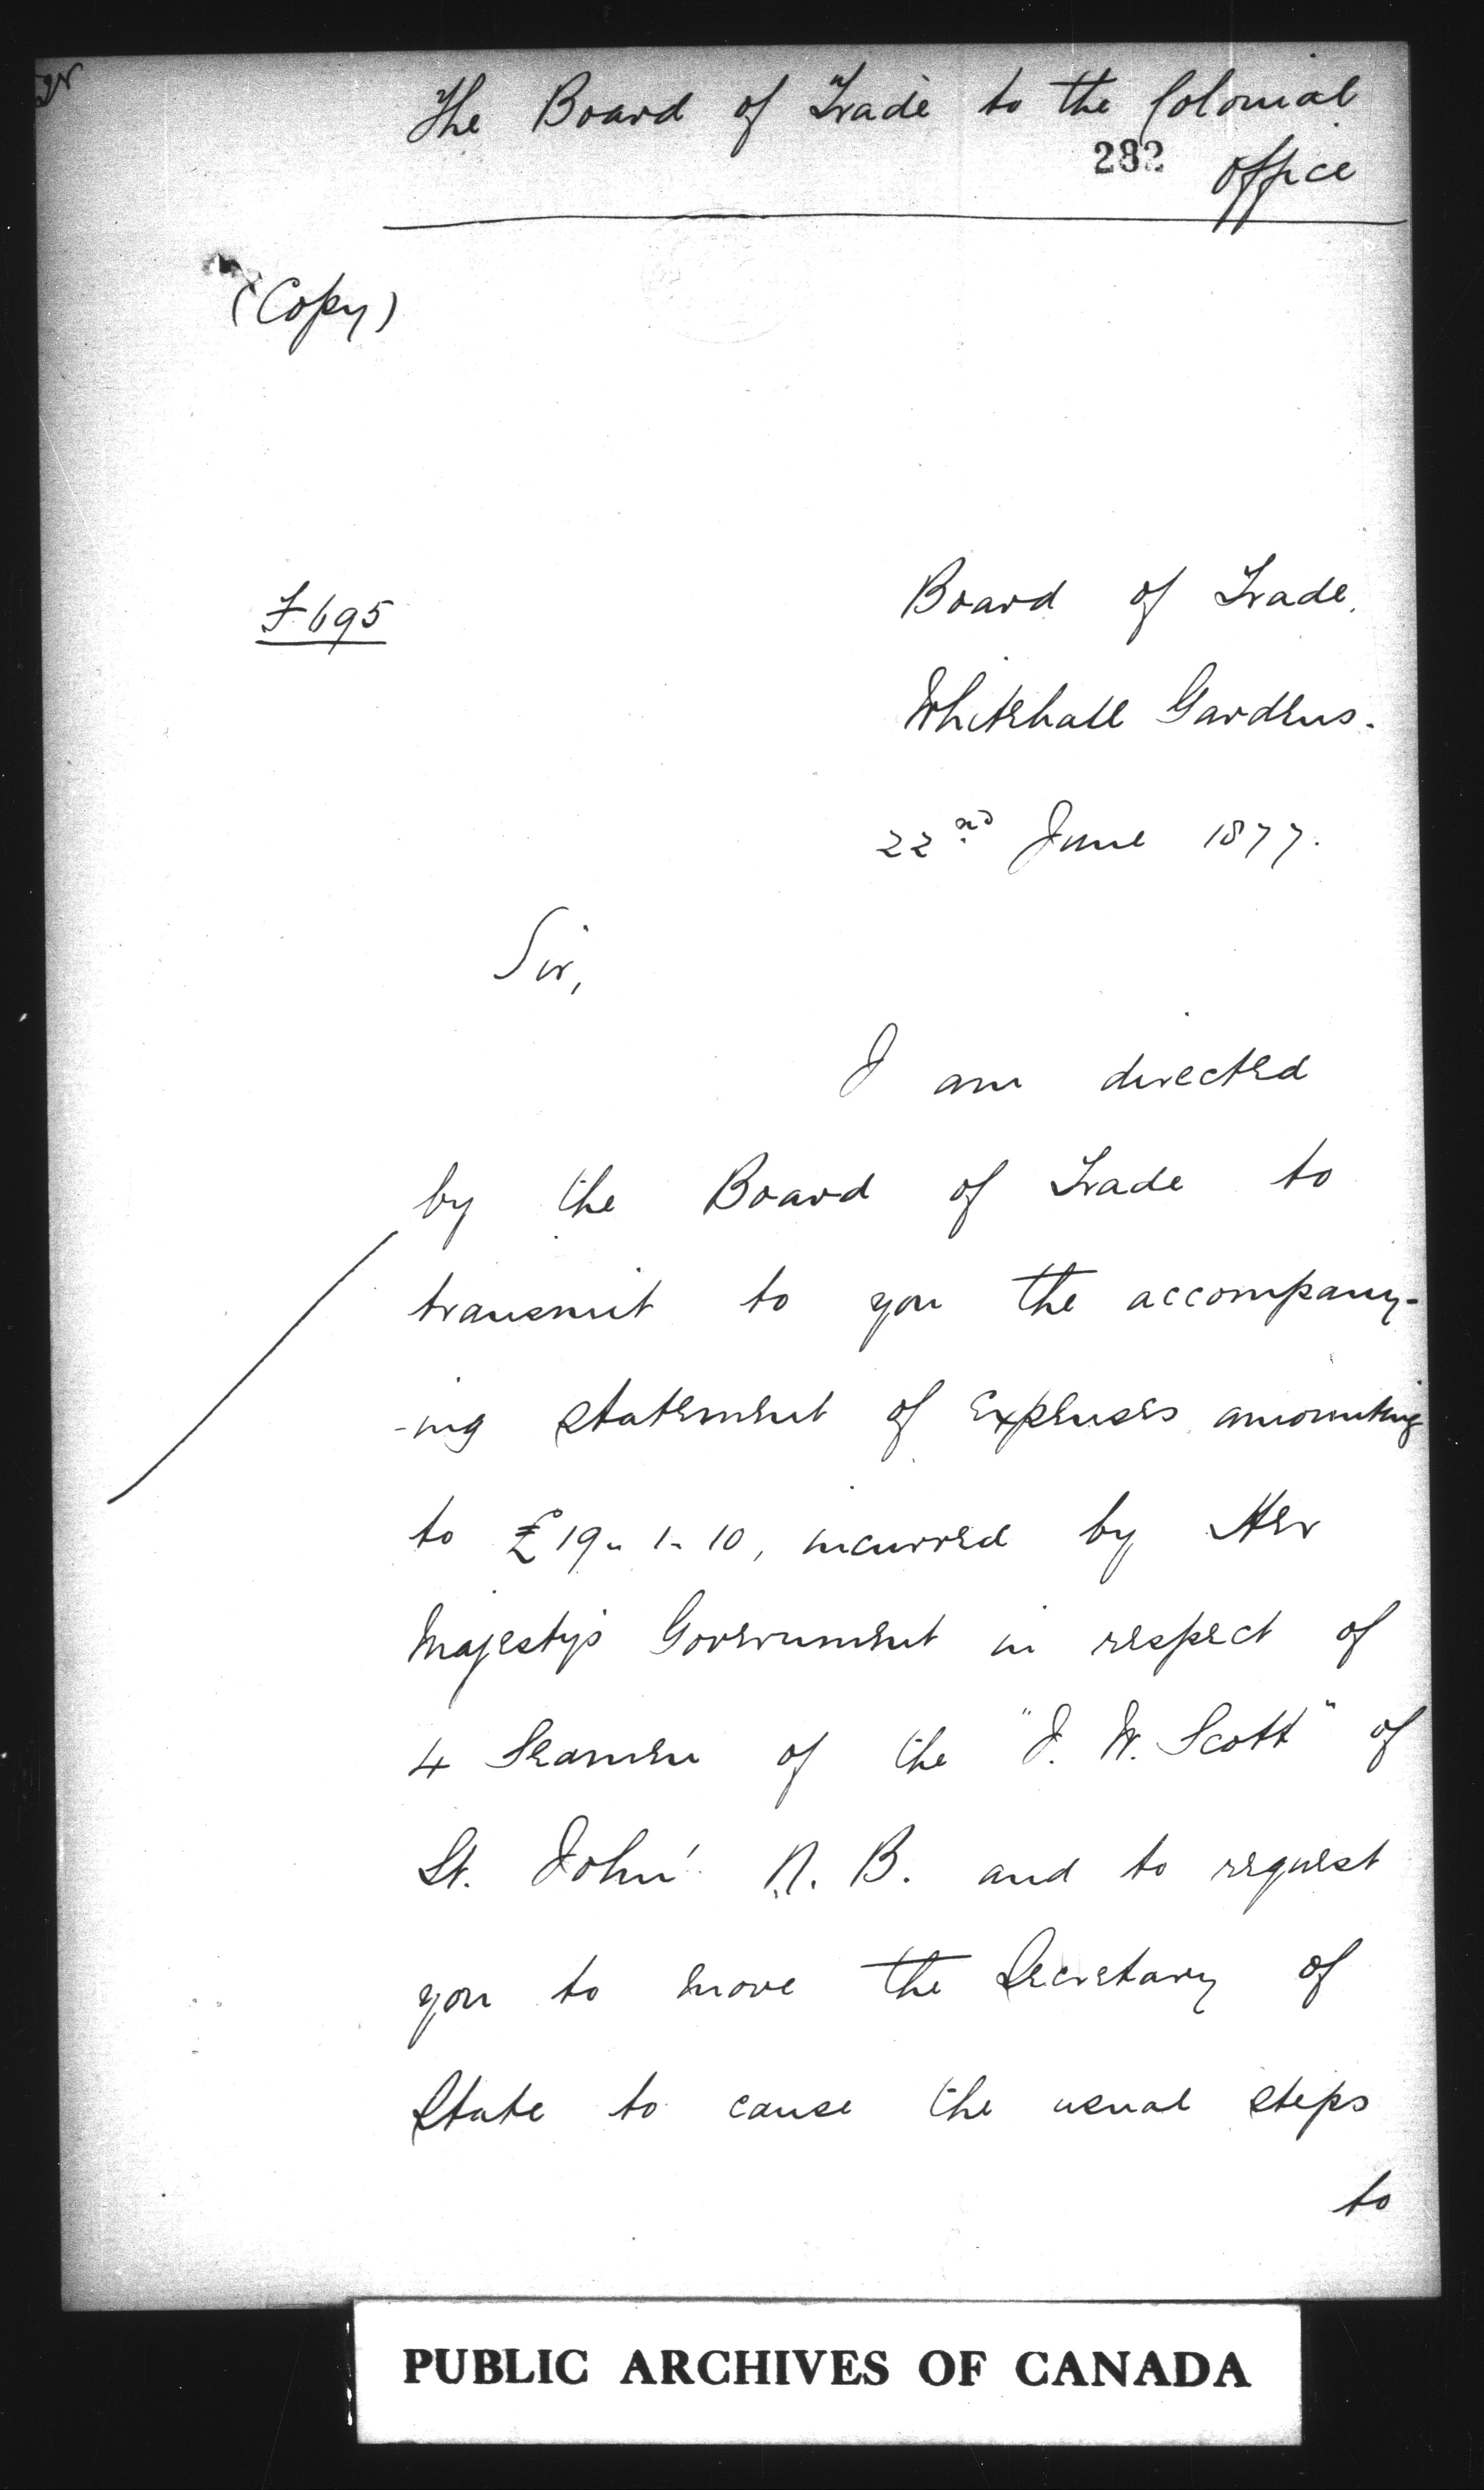 The Board of Trade to the Colonial
282 Office
(Copy)
Board of Trade.
F 695
Whitehall Gardens.
22nd June 1877.
Sir,
I am directed
by the Board of Trade to
transmit to you the accompany-
-ing statement of Expenses amounting
to £19-1-10, incurred by Her
Majesty's Government in respect of
4 Seamen of the "J. W. Scott" of
St. John N. B. and to request
you to move the Secretary of
State to cause the usual steps
to
PUBLIC ARCHIVES OF CANADA